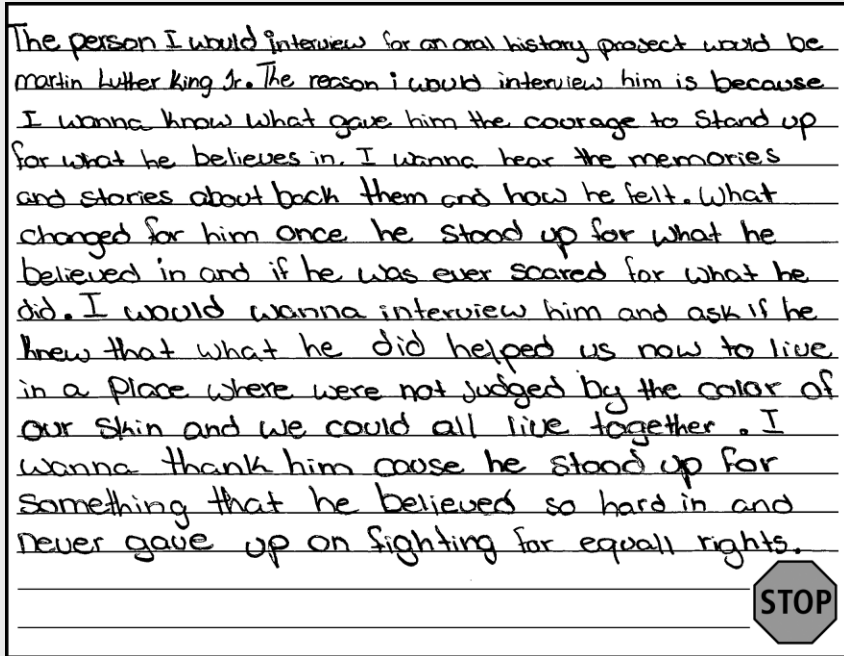 The person I would interview for an oral history project would be
martin Lutter King Jr. The reason i would interview him is because
I wanna know what gave him the courage to Stand up
for what he believes in. I wanna hear the memories
and stories about back them and how he felt. What
changed for him once he stood up for what he
believed in and if he was ever scared for what he
did. I would wanna interview him and ask if he
knew that what he did helped us now to live
in a place where were not judged by the color of
our skin and we could all live together. I
wanna thank him cause he stood up for
something that he believed so hard in and
never gave up on fighting for equall rights.
STOP